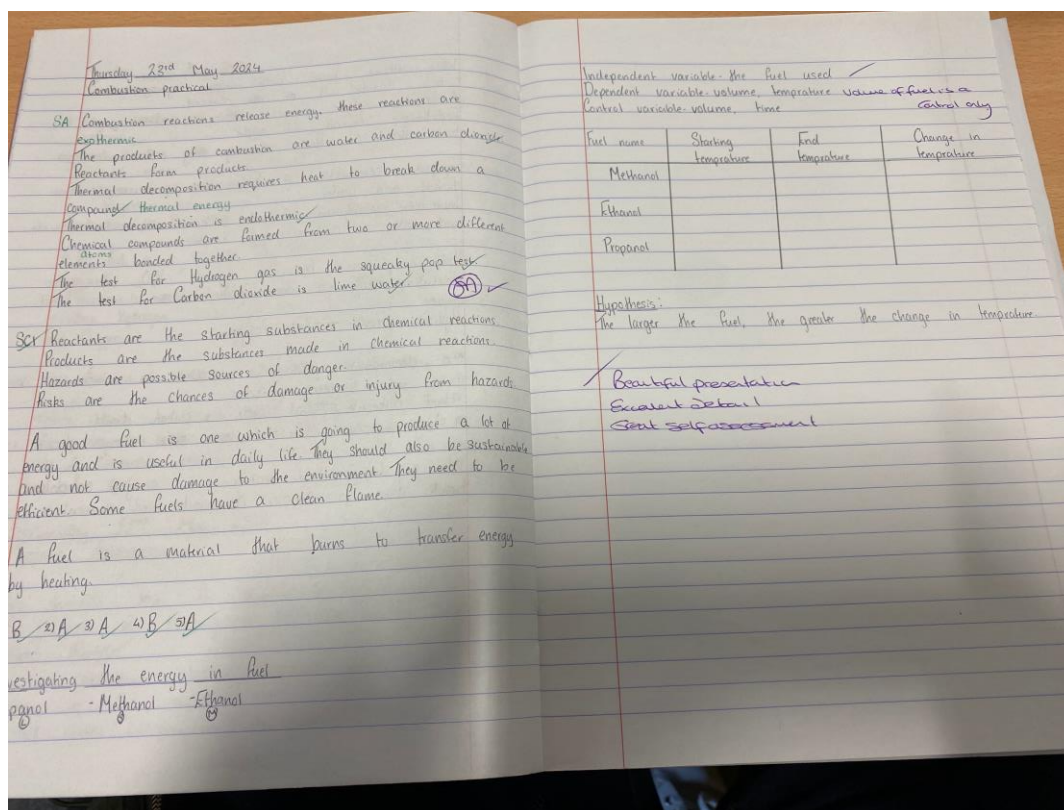 Thursday 23rd May 2024
Combustion practical
SA Combustion reactions release energy, these reactions are
exothermic
The products of combustion are water and carbon dioxide
Reactants form products
Thermal decomposition requires heat to break down a
compound thermal energy
Thermal decomposition is endothermic
Chemical compounds are formed from two or more different
atoms
elements bonded together.
The test for Hydrogen gas is the squeaky pop test
The test for Carbon dioxide is lime water
SA
SC1 Reactants are the starting substances in chemical reactions
Products are the substances made in chemical reactions.
Hazards are possible sources of danger
Risks are the chances of damage or injury from hazards
A good fuel is one which is going to produce a lot of
energy and is useful in daily life They should also be sustainable
and not cause damage to the environment They need to be
efficient Some fuels have a clean flame
A fuel is a material that burns to transfer energy
by heating.
B 2) A 3) A 4) B 5) A
vestigating the energy in fuel
panol - Methanol - Ethanol
Independent variable- the fuel used
Dependent variable- volume, temprature volume of fuel is a
Control variable- volume, time control only
Fuel name Starting temprature End temprature Change in temprature
Methanol
Ethanol
Propanol
Hypothesis:
The larger the fuel, the greater the change in temprature
Beautiful presentation
Excellent detail
Great self assessment